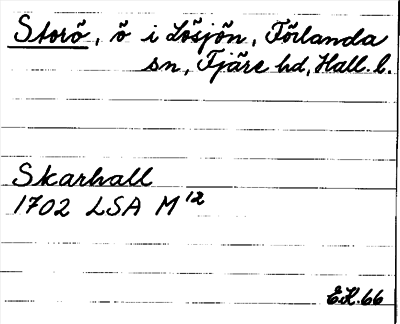 Storö, ö i Lösjön, Förlanda
sn, Fjäre hd, Hall. l.
Skarhall
1702 LSA M¹²
E.H. 66